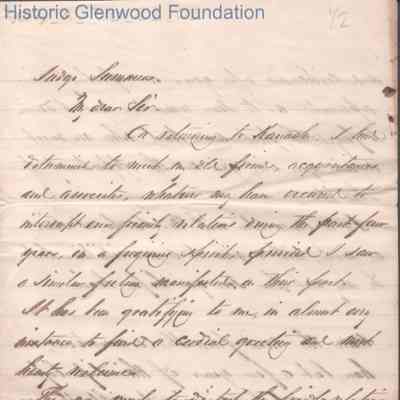 Historic Glenwood Foundation
1/2
Judge Summers.
My dear Sir.
On returning to Kanawha I had
determined to meet my old friends, acquaintances
and associates, whatever may have occurred to
interrupt our friendly relations during the past four
years, in a forgiving spirit, provided I saw
a similar feeling manifested on their part.
It has been gratifying to me, in almost every
instance to find a cordial greeting and much
heart welcome.